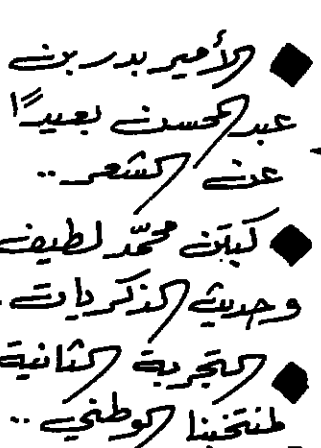 ◆ الأمير بدر بن
عبد المحسن بعيداً
عن الشعر ..
◆ كبتن محمّد لطيف
وحديث الذكريات .
◆ التجربة الثانية
لمنتخبنا الوطني ..